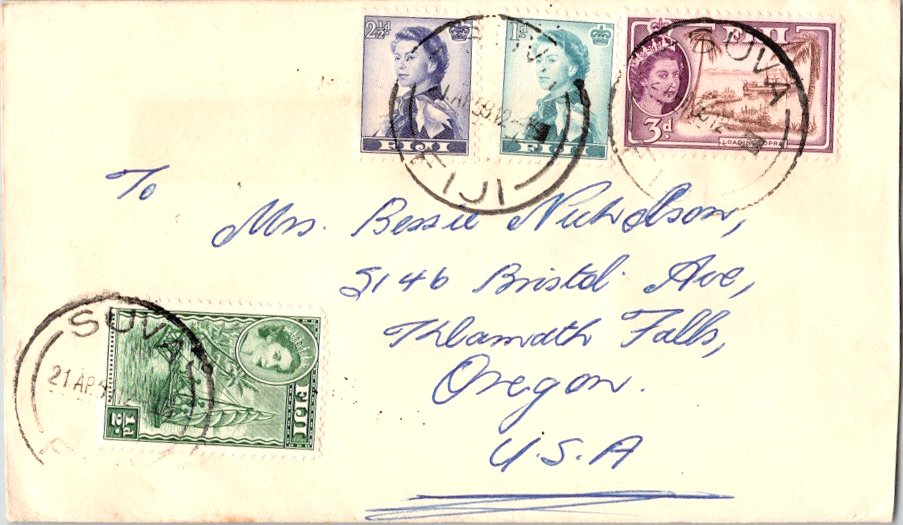 2½d 1d FIJI
FIJI FIJI 3d LOADING COPRA
SUVA
FIJI
To
Mrs. Bessie Nicholson,
5146 Bristol Ave,
Khlamath Falls,
Oregon.
U.S.A
SUVA
21 AP
FIJI
½d